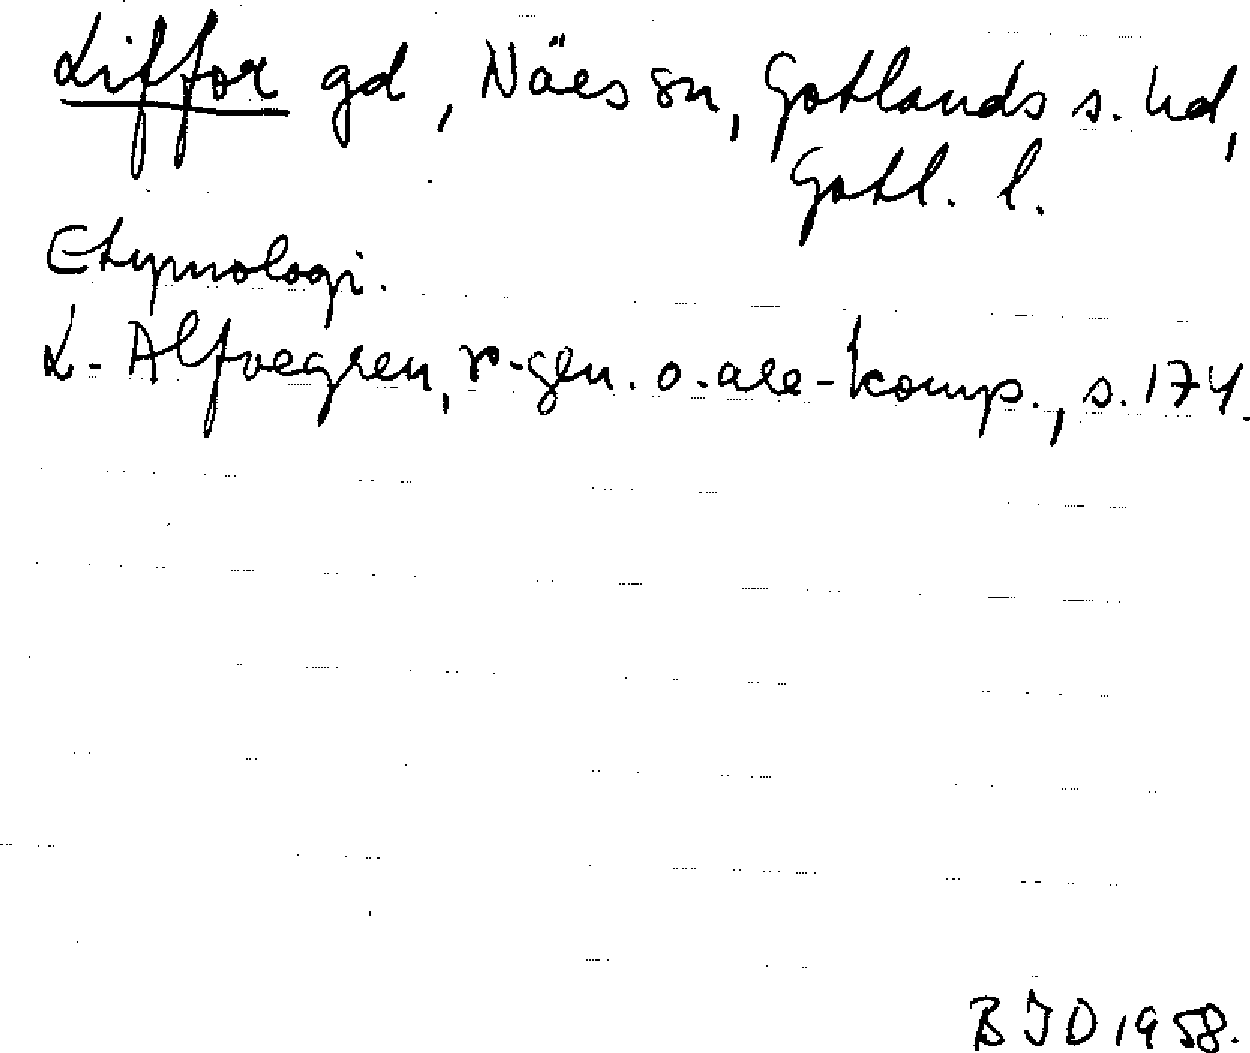 Liffor gd, Näs sn, Gotlands s. hd,
Gotl. l.
Etymologi.
L. Alfvegren, r-gen. o. are-komp., s. 174.
BJD 1958.